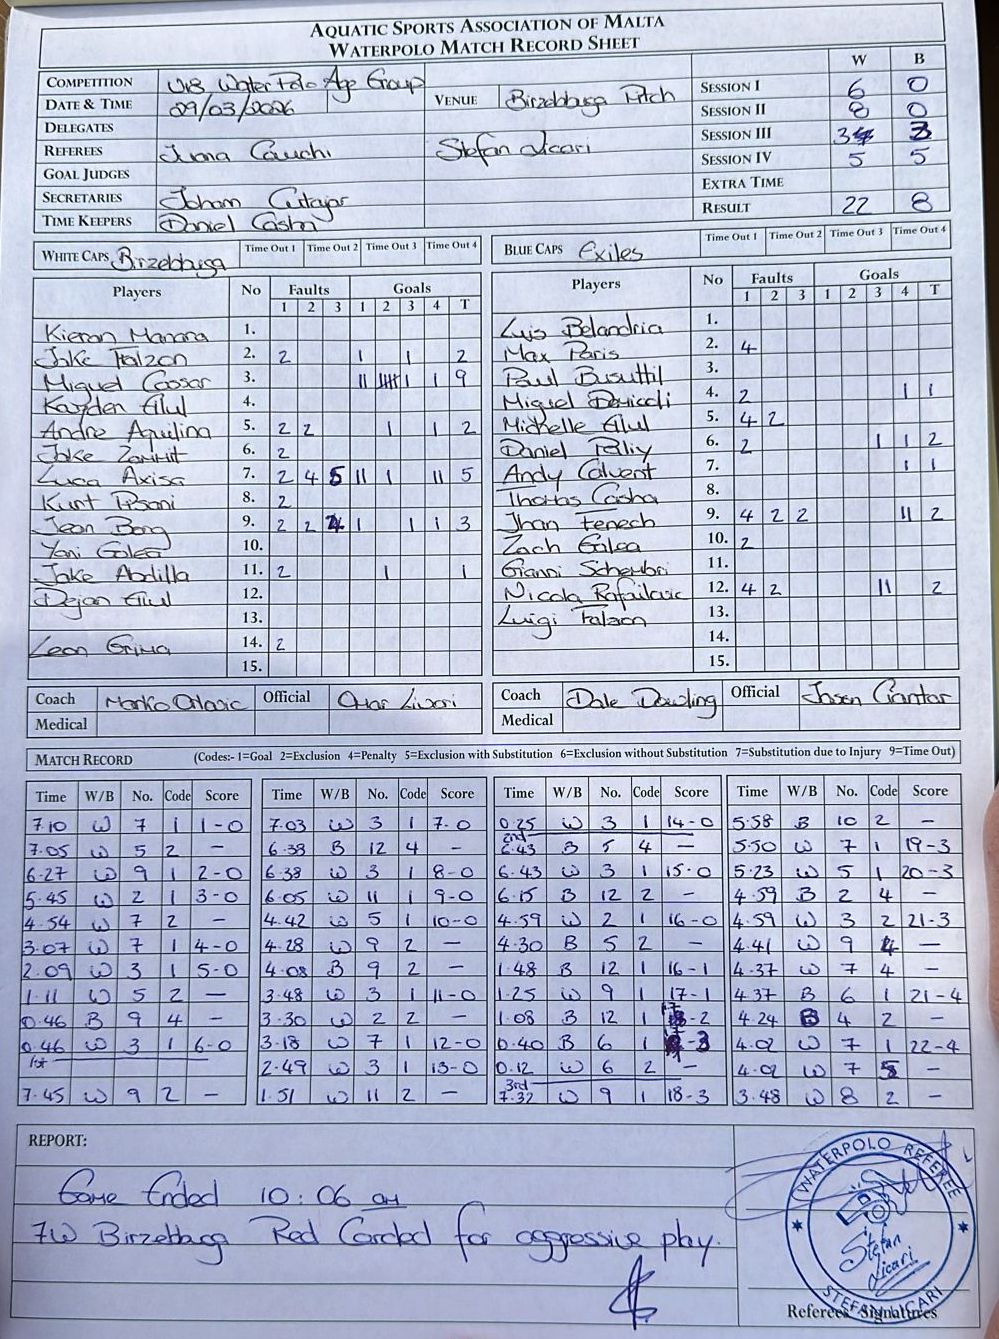 AQUATIC SPORTS ASSOCIATION OF MALTA
WATERPOLO MATCH RECORD SHEET
COMPETITION U18 Water Polo Age Group
DATE & TIME 29/03/2026 VENUE Birzebbuga Pitch
DELEGATES
REFEREES Cauchi Stefan Licari
GOAL JUDGES
SECRETARIES Johann Cutajar
TIME KEEPERS Daniel Casha
W B
SESSION I 6 0
SESSION II 8 0
SESSION III 3 3
SESSION IV 5 5
EXTRA TIME
RESULT 22 8
WHITE CAPS Birzebbuga Time Out 1 Time Out 2 Time Out 3 Time Out 4
Players No Faults Goals
1 2 3 1 2 3 4 T
Kieran Manara 1.
Jake Falzon 2. 2 1 1 2
Miguel 3. 11 1 1 9
Kayden Ellul 4.
Andre Aquilina 5. 2 2 1 1 2
Jake Zammit 6. 2
Luca Axisa 7. 2 4 5 11 1 11 5
Kurt 8. 2
Jeon Borg 9. 2 2 4 1 1 1 3
Yoni Galea 10.
Jake Abdilla 11. 2 1 1
Dejan Ellul 12.
13.
Leon Grima 14. 2
15.
BLUE CAPS Exiles Time Out 1 Time Out 2 Time Out 3 Time Out 4
Players No Faults Goals
1 2 3 1 2 3 4 T
Luis Belandria 1.
Max Paris 2. 4
Paul Busuttil 3.
Miguel 4. 2 1 1
Michelle Ellul 5. 4 2
Daniel 6. 2 1 1 2
Andy Calvent 7. 1 1
Thomas Casha 8.
Jhan Fenech 9. 4 2 2 11 2
Zach Galea 10. 2
Gianni Schembri 11.
Nicola 12. 4 2 11 2
Luigi Falzon 13.
14.
15.
Coach Marko Orlovic Official
Medical
Coach Dale Dowling Official Jason Cantar
Medical
MATCH RECORD (Codes:- 1=Goal 2=Exclusion 4=Penalty 5=Exclusion with Substitution 6=Exclusion without Substitution 7=Substitution due to Injury 9=Time Out)
Time W/B No. Code Score
7.10 W 7 1 1-0
7.05 W 5 2 —
6.27 W 9 1 2-0
5.45 W 2 1 3-0
4.54 W 7 2 —
3.07 W 7 1 4-0
2.09 W 3 1 5-0
1.11 W 5 2 —
0.46 B 9 4 —
0.46 W 3 1 6-0
1st
7.45 W 9 2 —
Time W/B No. Code Score
7.03 W 3 1 7-0
6.38 B 12 4 —
6.38 W 3 1 8-0
6.05 W 11 1 9-0
4.42 W 5 1 10-0
4.28 W 9 2 —
4.08 B 9 2 —
3.48 W 3 1 11-0
3.30 W 2 2 —
3.18 W 7 1 12-0
2.49 W 3 1 13-0
1.51 W 11 2 —
Time W/B No. Code Score
0.25 W 3 1 14-0
2nd
6.43 B 5 4 —
6.43 W 3 1 15-0
6.15 B 12 2 —
4.59 W 2 1 16-0
4.30 B 5 2 —
1.48 B 12 1 16-1
1.25 W 9 1 17-1
1.08 B 12 1 17-2
0.40 B 6 1 17-3
0.12 W 6 2 —
3rd
7.32 W 9 1 18-3
Time W/B No. Code Score
5.58 B 10 2 —
5.50 W 7 1 19-3
5.23 W 5 1 20-3
4.59 B 2 4 —
4.59 W 3 2 21-3
4.41 W 9 4 —
4.37 W 7 4 —
4.37 B 6 1 21-4
4.24 B 4 2 —
4.02 W 7 1 22-4
4.02 W 7 5 —
3.48 W 8 2 —
REPORT:
Game Ended 10:06 am
7W Birzebbuga Red Carded for aggressive play.
WATERPOLO REFEREE
Stefan
Licari
STEFAN LICARI
Referees' Signatures